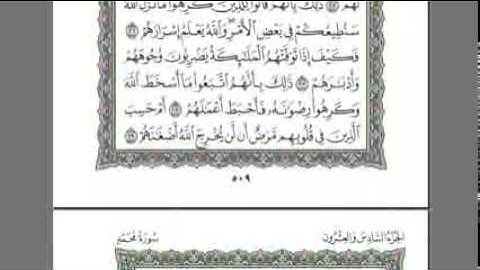 لَهُمْ ۝٢٥ ذَٰلِكَ بِأَنَّهُمْ قَالُوا۟ لِلَّذِينَ كَرِهُوا۟ مَا نَزَّلَ ٱللَّهُ
سَنُطِيعُكُمْ فِى بَعْضِ ٱلْأَمْرِ ۖ وَٱللَّهُ يَعْلَمُ إِسْرَارَهُمْ ۝٢٦
فَكَيْفَ إِذَا تَوَفَّتْهُمُ ٱلْمَلَٰٓئِكَةُ يَضْرِبُونَ وُجُوهَهُمْ
وَأَدْبَٰرَهُمْ ۝٢٧ ذَٰلِكَ بِأَنَّهُمُ ٱتَّبَعُوا۟ مَآ أَسْخَطَ ٱللَّهَ
وَكَرِهُوا۟ رِضْوَٰنَهُۥ فَأَحْبَطَ أَعْمَٰلَهُمْ ۝٢٨ أَمْ حَسِبَ
ٱلَّذِينَ فِى قُلُوبِهِم مَّرَضٌ أَن لَّن يُخْرِجَ ٱللَّهُ أَضْغَٰنَهُمْ ۝٢٩
٥٠٩
الجزء السادس والعشرون
سورة محمد